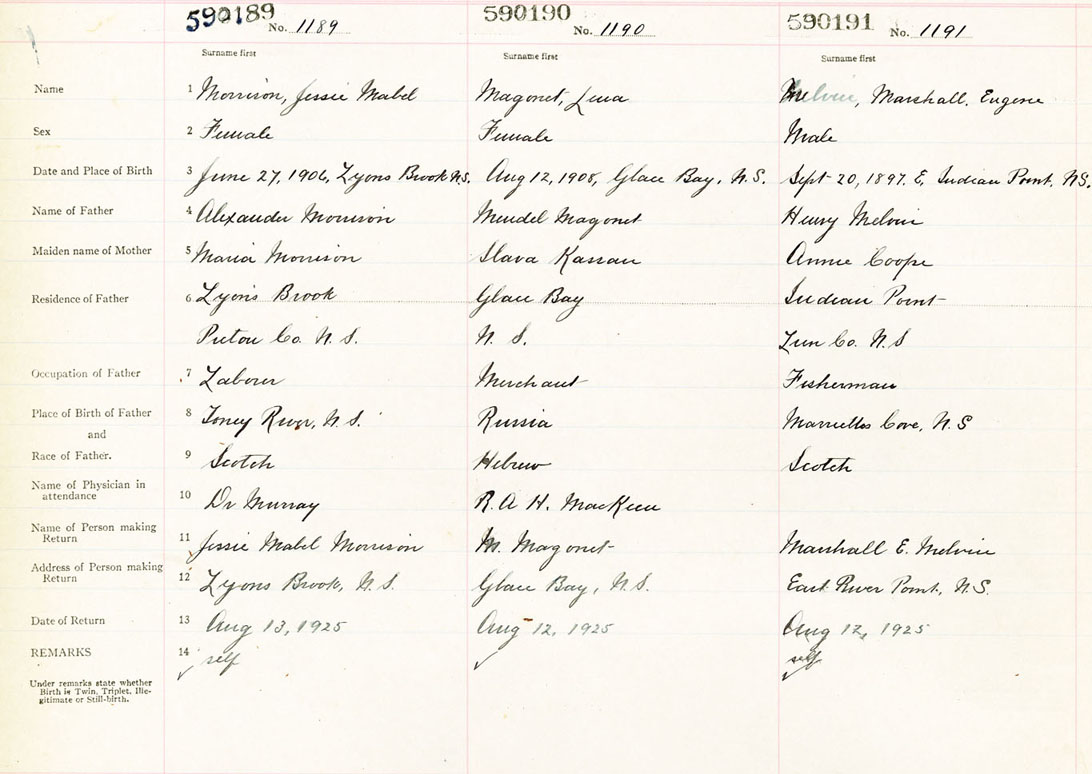 590189 No. 1189 590190 No. 1190 590191 No. 1191
Surname first Surname first Surname first
Name 1 Morrison, Jessie Mabel Magonet, Lena Melvin, Marshall. Eugene
Sex 2 Female Female Male
Date and Place of Birth 3 June 27, 1906, Lyons Brook N.S. Aug 12, 1908, Glace Bay, N.S. Sept 20, 1897. E, Indian Point, N.S.
Name of Father 4 Alexander Morrison Mendel Magonet Henry Melvin
Maiden name of Mother 5 Maria Morrison Slava Kassau Annie Coope
Residence of Father 6 Lyons Brook Glace Bay Indian Point
Pictou Co. N.S. N.S. Lun Co. N.S
Occupation of Father 7 Labourer Merchant Fisherman
Place of Birth of Father 8 Toney River, N.S. Russia Marriotts Cove, N.S
and
Race of Father. 9 Scotch Hebrew Scotch
Name of Physician in
attendance 10 Dr Murray R. A H. MacKeen
Name of Person making
Return 11 Jessie Mabel Morrison M. Magonet Marshall E. Melvin
Address of Person making
Return 12 Lyons Brook, N.S. Glace Bay, N.S. East River Point, N.S.
Date of Return 13 Aug 13, 1925 Aug 12, 1925 Aug 12, 1925
REMARKS 14 ✓ self ✓ self ✓
Under remarks state whether
Birth is Twin, Triplet, Ille-
gitimate or Still-birth.